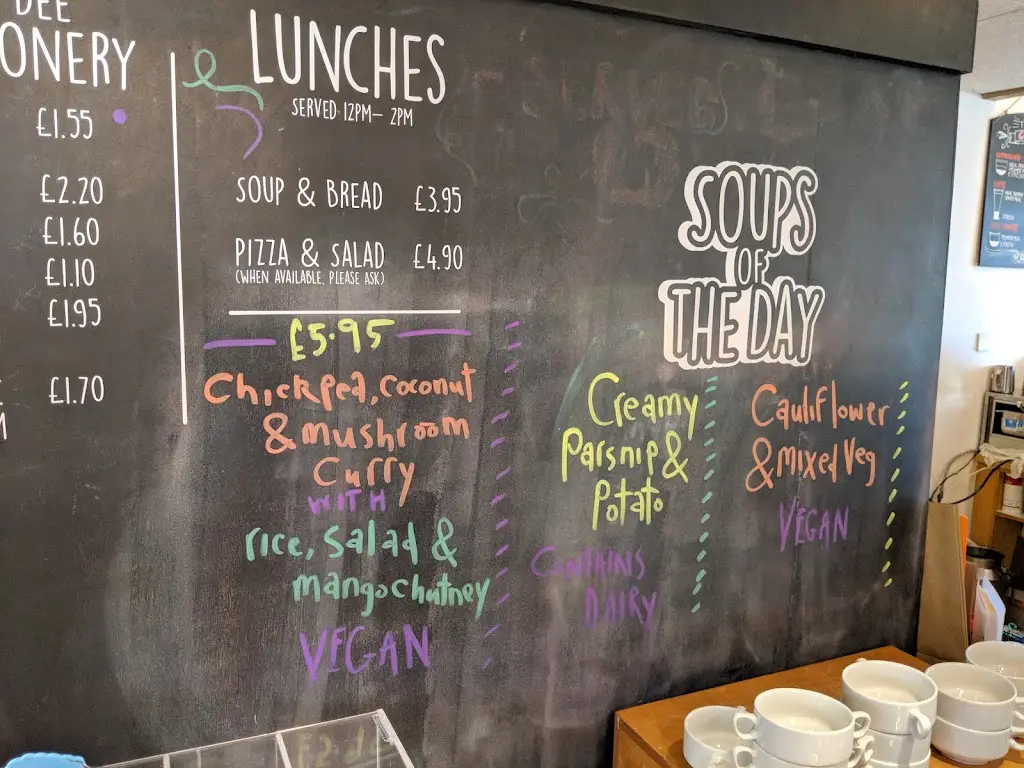 DEE
ONERY
£1.55
£2.20
£1.60
£1.10
£1.95
£1.70
LUNCHES
SERVED 12PM – 2PM
SOUP & BREAD £3.95
PIZZA & SALAD £4.90
(WHEN AVAILABLE, PLEASE ASK)
£5.95
Chickpea, coconut
& mushroom
Curry
WITH
rice, salad &
mango chutney
VEGAN
SOUPS
OF
THE DAY
Creamy
Parsnip &
Potato
CONTAINS
DAIRY
Cauliflower
& mixed veg
VEGAN